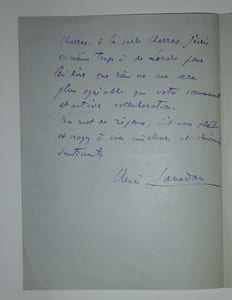 Charras, à la seule Charras, j'écris
en même temps à de
lui dire que rien ne me sera
plus agréable que votre
et active collaboration.
Un mot de réponse, s'il vous plaît
et croyez à mes meilleurs et
sentiments
Henri Lavedan